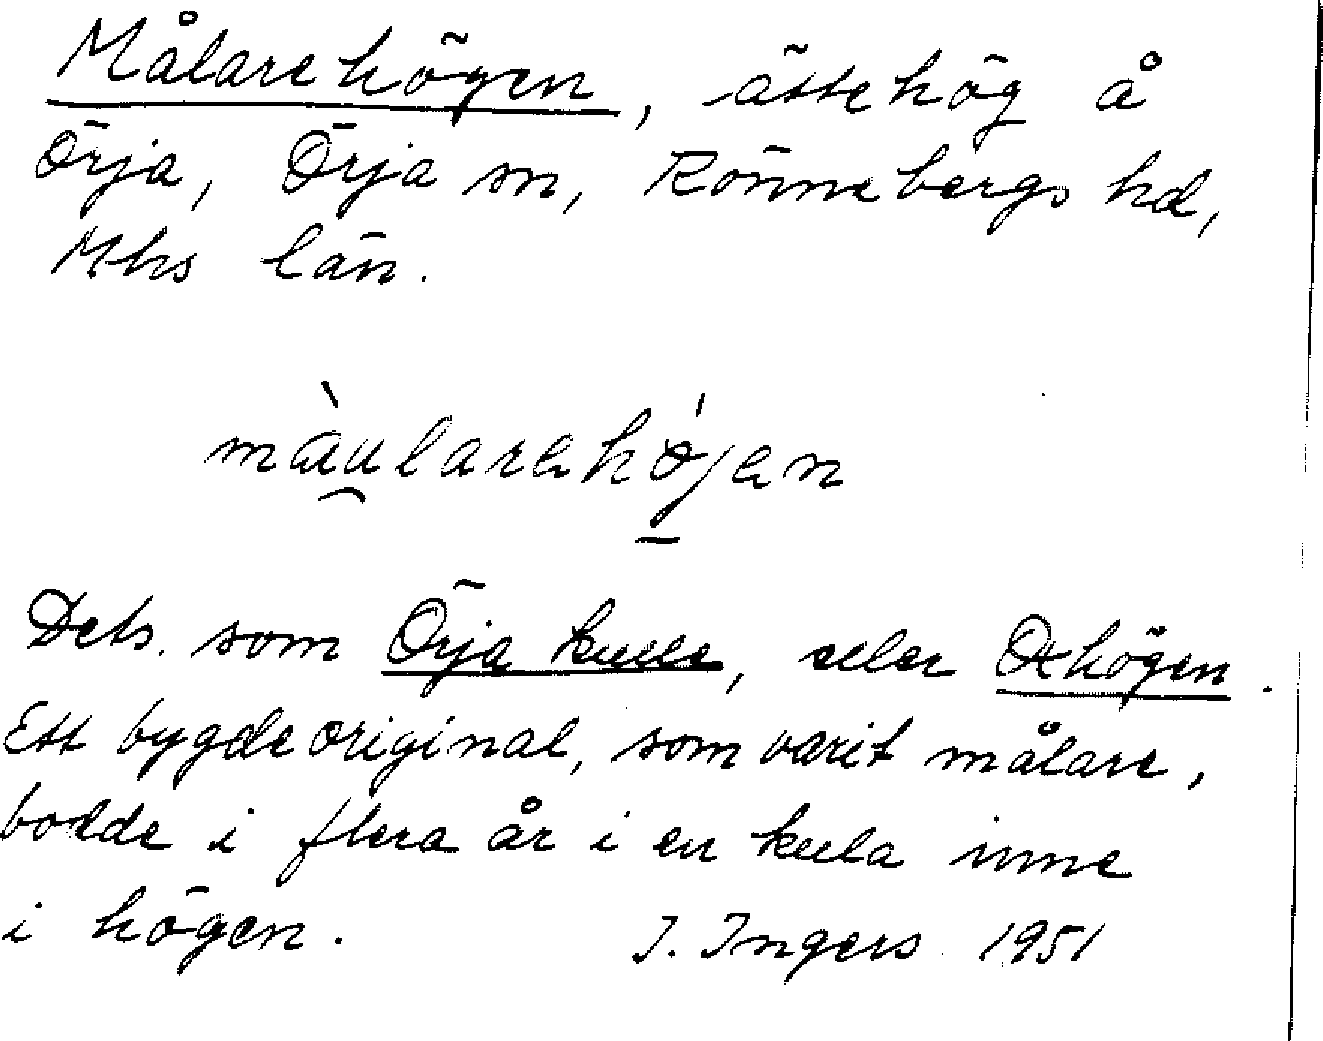 Målarehögen, ättehög å
Örja, Örja sn, Rönnebergs hd,
Mhs län.
mà̯ularehǿjen
Dets. som Örja kulle, eller Oxhögen.
Ett bygdeoriginal, som varit målare,
bodde i flera år i en kula inne
i högen. I. Ingers 1951